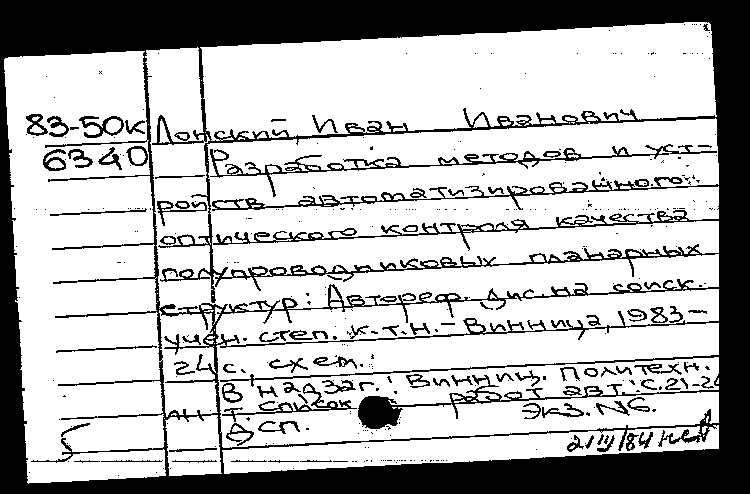 83-50к Лонский, Иван Иванович
6340 Разработка методов и уст-
ройств автоматизированного
оптического контроля качества
полупроводниковых планарных
структур: Автореф. дис. на соиск.
учен. степ. к.т.н. - Винница, 1983-
24 с., схем.
В надзаг.: Винниц. политехн.
ин-т. Список работ авт.: с. 21-2
ДСП. Экз. №6.